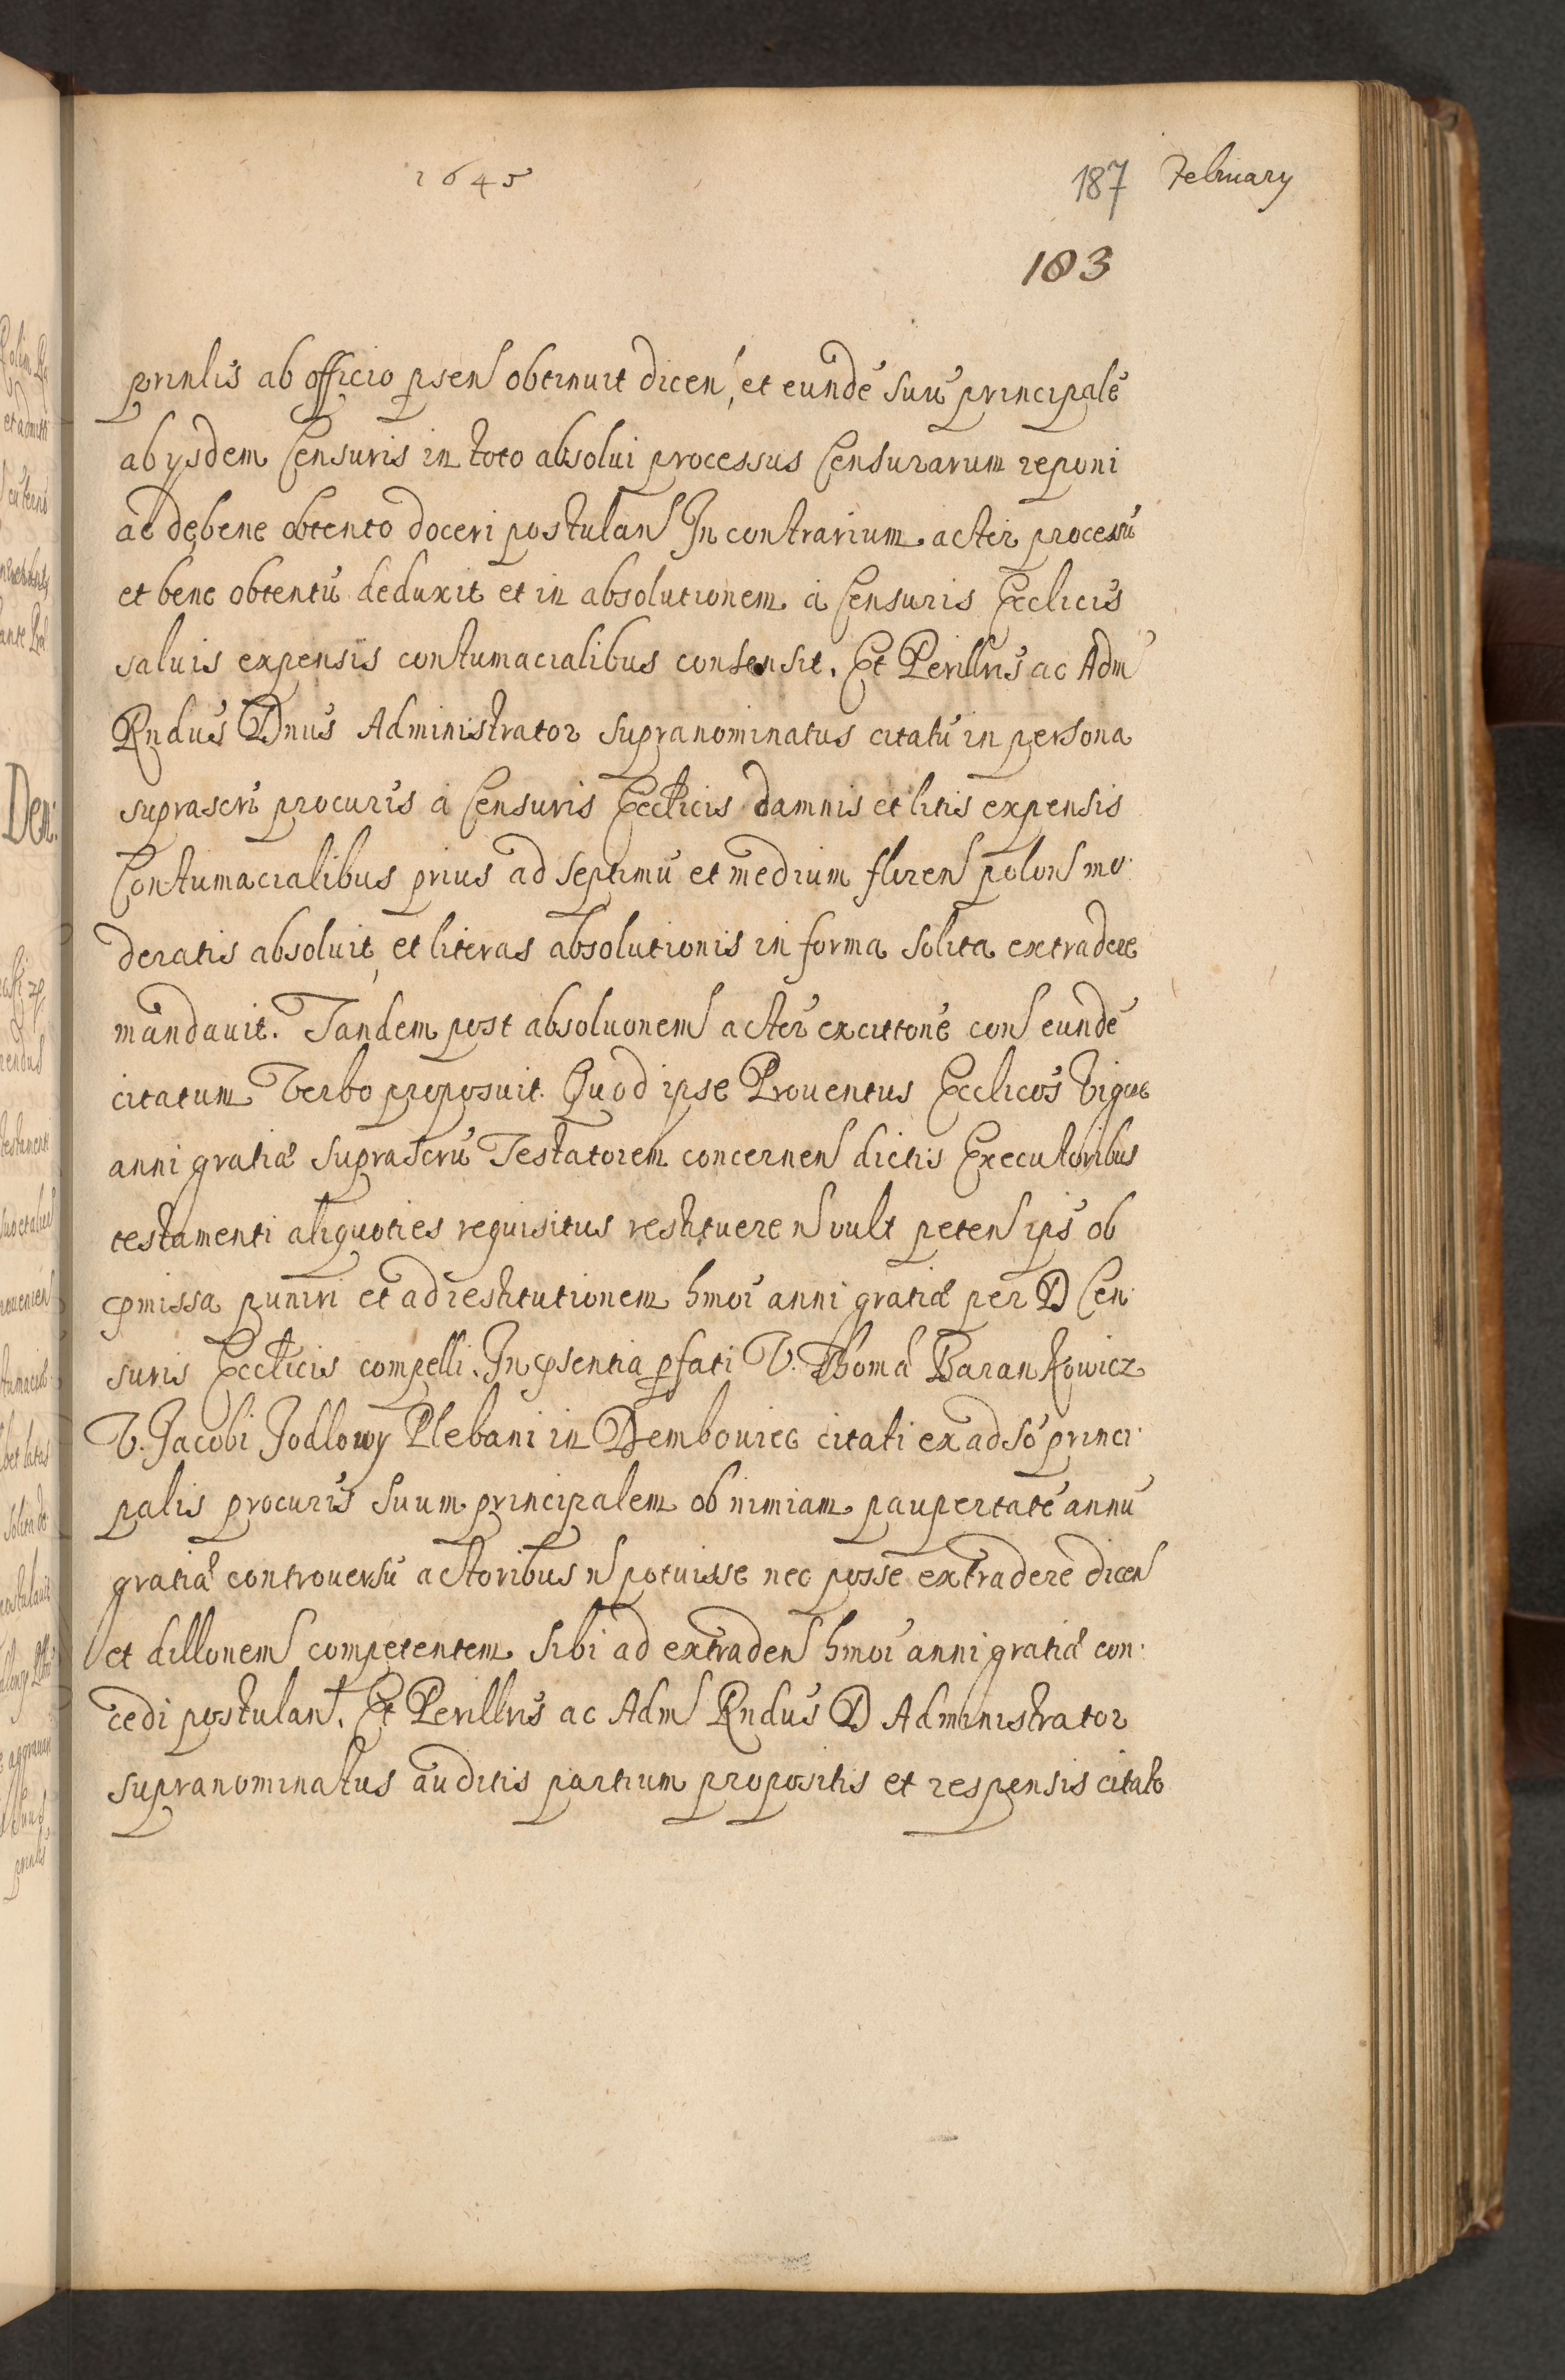 1645
187 February
183
prinlis ab officio psen obtinuit dicen, et eundē suū principalē
ab ysdem Censuris in toto absolui processus Censurarum reponi
ac de bene obtento doceri postulan In contrarium actor processū
et bene obtentū deduxit et in absolutionem à Censuris Ecclicis
saluis expensis contumacialibus consensit. Et Perillris ac Adm
Rndus Dnus Administrator supranominatus citatū in persona
suprascri procuris à Censuris Ecclicis damnis et litis expensis
Contumacialibus prius ad septimū et medium floren polon mo
deratis absoluit, et literas absolutionis in forma solita extradere
mandauit. Tandem post absoluonem actor con eundē
citatum Verbo proposuit. Quod ipse Prouentus Ecclicos Vigore
anni gratiæ suprascrū Testatorem concernen dictis Executoribus
testamenti aliquoties requisitus restituere n vult peten ips ob
pmissa puniri et ad restitutionem hmoi anni gratiæ per D Cen
suris Ecclicis compelli. In psentia pfati V. Thomæ Barankowicz
V. Jacobi Jodlowy Plebani in Dembowiec citati ex adso princi
palis procuris suum principalem ob nimiam paupertatē annū
gratiæ controuersū actoribus n potuisse nec posse extradere dicen
et dillonem competentem sibi ad extraden hmoi anni gratiæ con
cedi postulan. Et Perillris ac Adm Rndus D Administrator
supranominatus auditis partium propositis et responsis citato